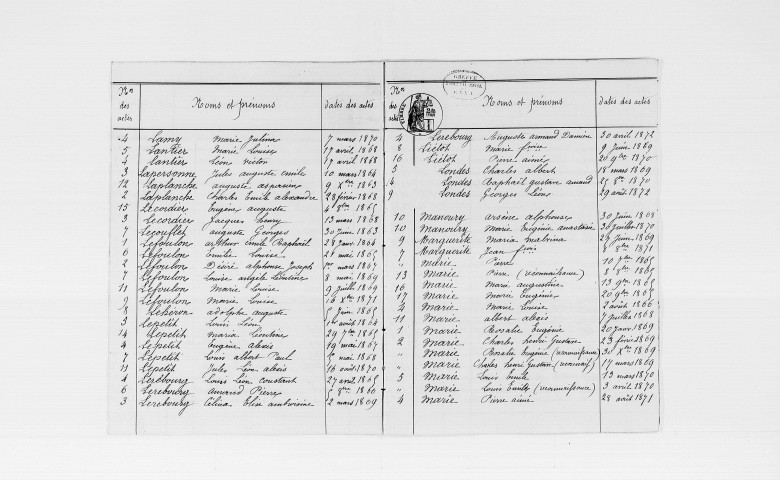 Nos des actes Noms et prénoms dates des actes
4 Lamy Marie Juliene 7 mars 1870
5 Lantier Marie Louise 17 avril 1868
4 Lantier Léon victor 17 avril 1868
3 Lapersonne Jules auguste emile 10 mars 1864
12 Laplanche auguste 9 Xbre 1863
2 Laplanche Charles Emile alexandre 28 février 1868
15 Lecordier Eugène auguste
3 Lecordier Jacques henry 13 mars 1868
7 Lecouflet auguste Georges 30 juin 1863
1 Lefoulon arthur emile Raphaël 28 janv 1864
6 Lefoulon Emilie Louise 21 mai 1865
2 Lefoulon Désiré alphonse Joseph 1er mars 1867
7 Lefoulon Louise angèle Léontine 8 mai 1869
11 Lefoulon Marie Louise 9 juillet 1869
9 Lefoulon Marie Louise 16 Xbre 1871
8 adolphe auguste 5 juin 1865
3 Lepetit Louis Léon
14 Lepetit maria Léontine 29 7bre 1865
4 Lepetit Eugène alexis 19 mai 1867
7 Lepetit Louis albert Paul 1er mai 1868
11 Lepetit Jules Léon alexis 16 août 1870
4 Lerebourg Louis Léon constant 27 avril 1865
6 Lerebourg armand Pierre
3 Lerebourg Célina Elise ambroisine 2 mars 1869
Nos des actes Noms et prénoms dates des actes
4 Lerebourg Auguste armand Damien 30 avril 1872
8 Liétot Marie 9 juin 1869
16 Liétot Pierre aimé 20 9bre 1870
5 Londes Charles albert 18 mars 1869
4 Londes Raphaël gustave amand 1870
9 Londes Georges Léon 29 août 1872
10 Manoury arsène alphonse 30 juin 1868
10 Manoury Marie Eugénie anastasie 30 juillet 1870
9 Marguerite Maria malvina 29 juin 1869
7 Marguerite Jean 1871
" Marie Pierre 10 7bre 1865
13 Marie Pierre (reconnaissance)
16 Marie Marie augustine 13 9bre 1865
17 Marie Marie Eugénie 20 9bre 1865
4 Marie Marie Louise 2 août 1866
11 Marie albert alexis 7 juillet 1868
1 Marie Rosalie Eugénie 20 janv 1869
2 Marie Charles henri Gustave 23 février 1869
" Marie Rosalie Eugénie (reconnaissance) 30 Xbre 1869
" Marie Charles henri Gustave (reconnaiss) 17 mars 1869
3 Marie Louis Emile 13 mars 1870
" Marie Louis Emile (reconnaissance) 3 avril 1870
4 Marie Pierre aimé 28 août 1871